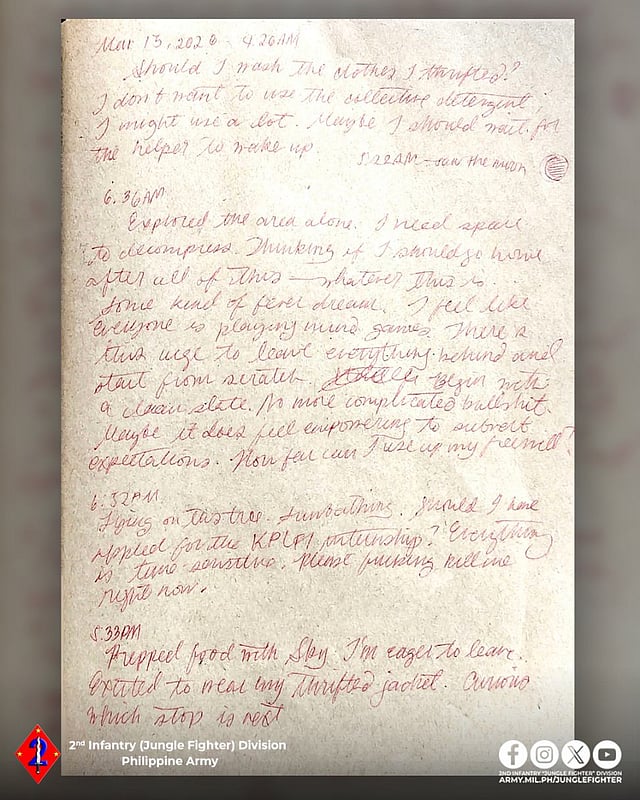 Mar 13, 2026 - 4:26AM
Should I wash the clothes I thrifted?
I don't want to use the collective detergent,
I might use a lot. Maybe I should wait for
the helper to wake up.
5:22AM - saw the moon
6:36AM
Explored the area alone. I need space
to decompress. Thinking if I should go home
after all of this — whatever this is.
Some kind of fever dream. I feel like
everyone is playing mind games. There is
this urge to leave everything behind and
start from scratch. Begin with
a clean slate. No more complicated bullshit.
Maybe it does feel empowering to subvert
expectations. How far can I use up my freewill?
6:52AM
Lying on this tree. Sunbathing. Should I have
applied for the KPLFI internship? Everything
is time sensitive. Please fucking kill me
right now.
5:33PM
Prepped food with Sky. I'm eager to leave.
Excited to wear my thrifted jacket. Curious
which stop is next
2nd Infantry (Jungle Fighter) Division
Philippine Army
2ND INFANTRY "JUNGLE FIGHTER" DIVISION
ARMY.MIL.PH/JUNGLEFIGHTER